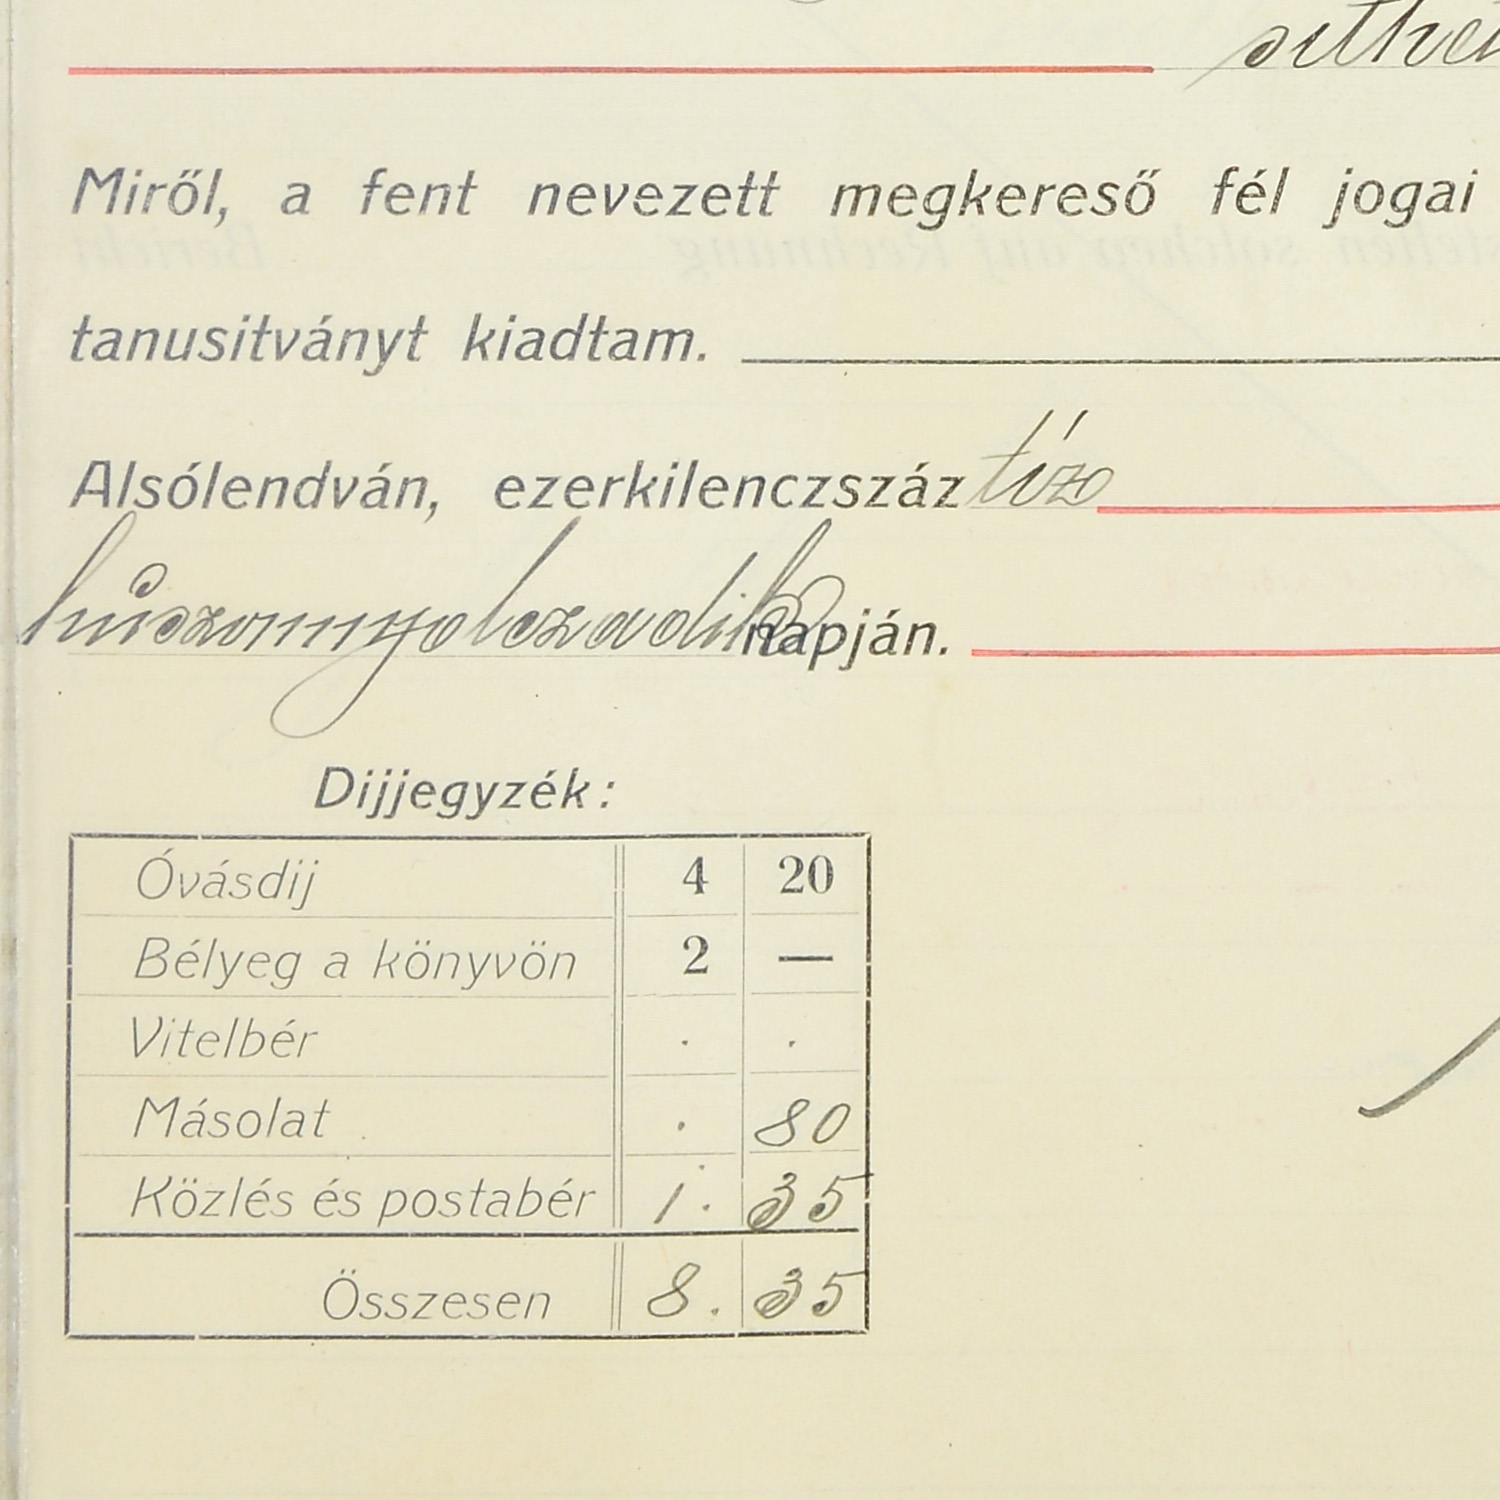 Miről, a fent nevezett megkereső fél jogai
tanusitványt kiadtam.
Alsólendván, ezerkilenczszáz tíz
húszonnyolczadik napján.
Dijjegyzék:
Óvásdij 4 20
Bélyeg a könyvön 2 —
Vitelbér . .
Másolat . 80
Közlés és postabér 1. 35
Összesen 8. 35